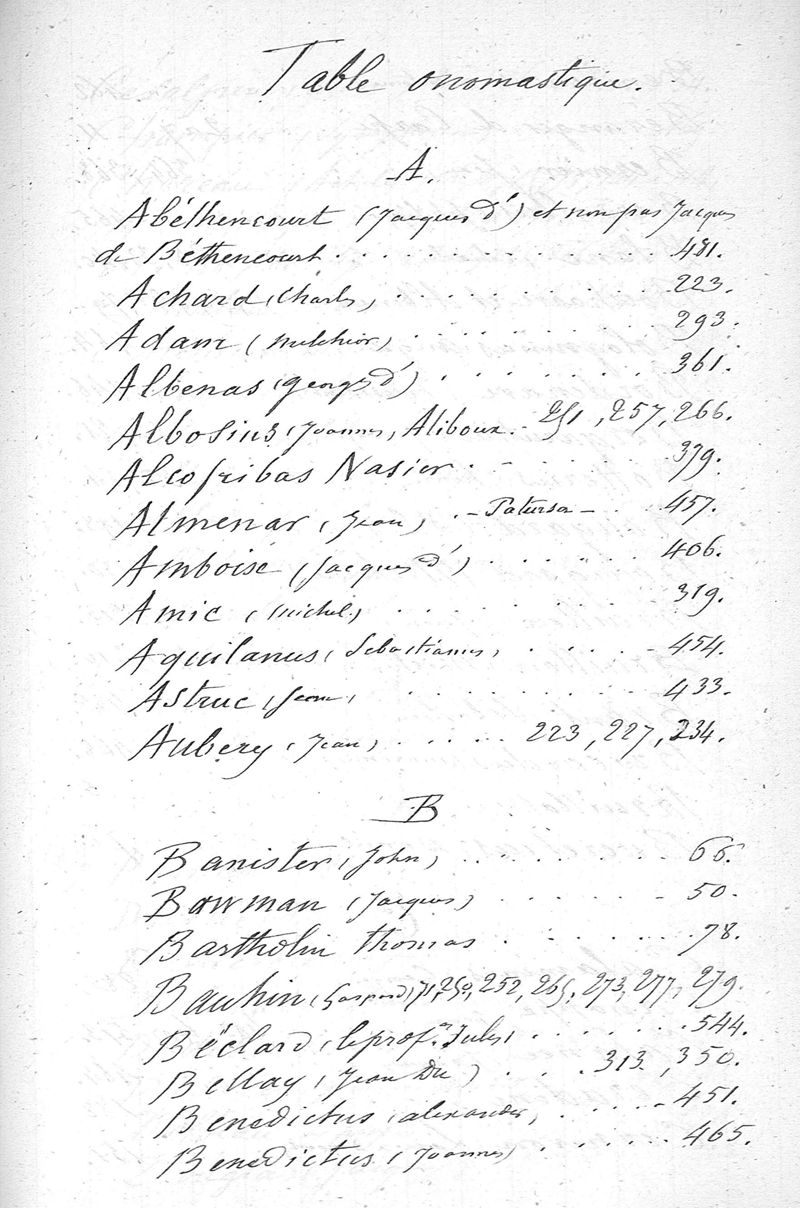 Table onomastique.
A.
Abéthencourt (Jacques d') et non pas Jacques
de Béthencourt . . . . . . . . . . . 481.
Achard (Charles) . . . . . . . . . . 223.
Adam (Melchior) . . . . . . . . . . 293.
Albenas (Georges d') . . . . . . . . 361.
Albosius (Joannes), Aliboux. - 251, 257, 266.
Alcofribas Nasier . . . . . . . . . 379.
Almenar (Jean) . - Patursa - . . 457.
Amboise (Jacques d') . . . . . . . 406.
Amic (Michel) . . . . . . . . . . 319.
Aquilanus (Sebastianus) . . . . . . 454.
Astruc (Jean) . . . . . . . . . . 433.
Aubery (Jean) . . . . . . 223, 227, 234.
B
Banister (John) . . . . . . . . . . 66.
Bowman (Jacques) . . . . . . . . 50.
Bartholin Thomas . . . . . . . . 78.
Bauhin (Gaspard) 71, 250, 252, 265, 273, 277, 279.
Béclard (le profr. Jules) . . . . . . . 544.
Bellay (Jean Du) . . . . 313, 350.
Benedictus (Alexander) . . . . . . 451.
Benedictus (Joannes) . . . . . . . 465.